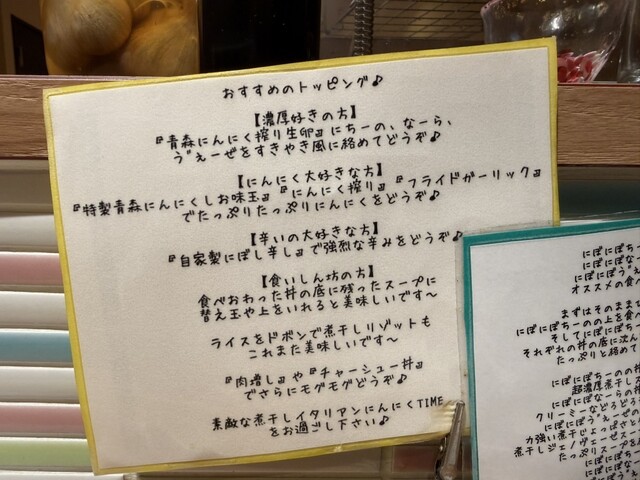 おすすめのトッピング♪
【濃厚好きの方】
『青森にんにく搾り生卵』にちーの、なーら、
う゛ぇーぜをすきやき風に絡めてどうぞ♪
【にんにく大好きな方】
『特製青森にんにくしお味玉』『にんにく搾り』『フライドガーリック』
でたっぷりたっぷりにんにくをどうぞ♪
【辛いの大好きな方】
『自家製にぼし辛し』で強烈な辛みをどうぞ♪
【食いしん坊の方】
食べおわった丼の底に残ったスープに
替え玉や上をいれると美味しいです〜
ライスをドボンで煮干しリゾットも
これまた美味しいです〜
『肉増し』や『チャーシュー丼』
でさらにモグモグどうぞ♪
素敵な煮干しイタリアンにんにくTIME
をお過ごし下さい♪
にぼにぼち
にぼにぼな
にぼにぼう゛
オススメの食
まずはそのまま
にぼにぼちーのの上を食
そしてにぼにぼち
それぞれの丼の底に沈ん
たっぷりと絡めて
にぼにぼちーのの
超濃厚煮干し
にぼにぼなーらの
クリーミーなどろどろ
にぼにぼう゛ぇーぜ
力強い煮干じょっぱさと
煮干しジェノヴェーゼスー
たっぷりスープを
にぼにぼ
にぼにぼな